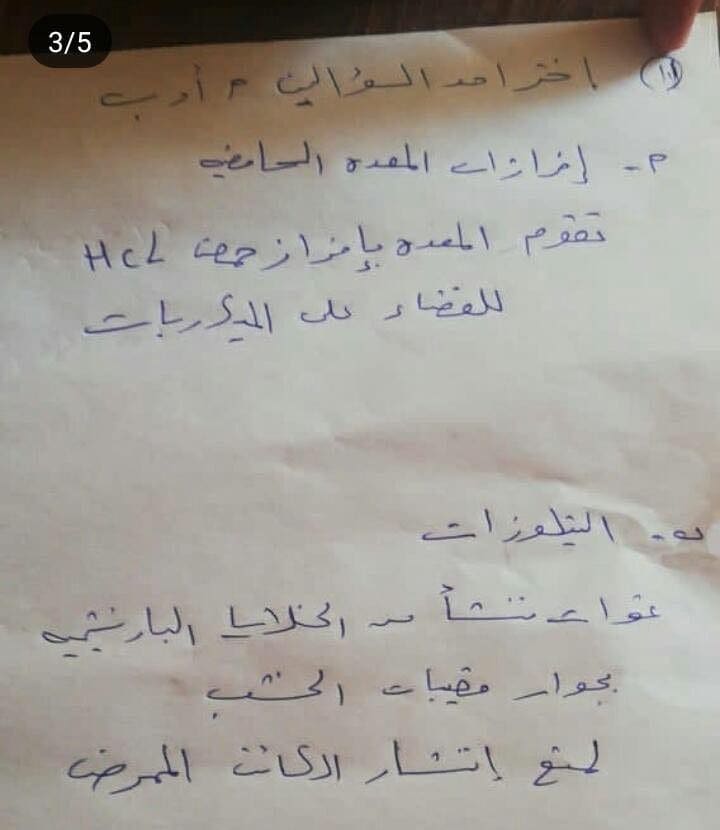 3/5
(١٠) إختر احد السؤالين م أو ب
م- إفرازات المعده الحامضيه
تقوم المعده بإفراز حمض HcL
للقضاء على الميكروبات
ب- التيلوزات
نموات تنشأ من الخلايا البارنشيميه
بجوار قصيبات الخشب
لمنع إنتشار الكائن الممرض